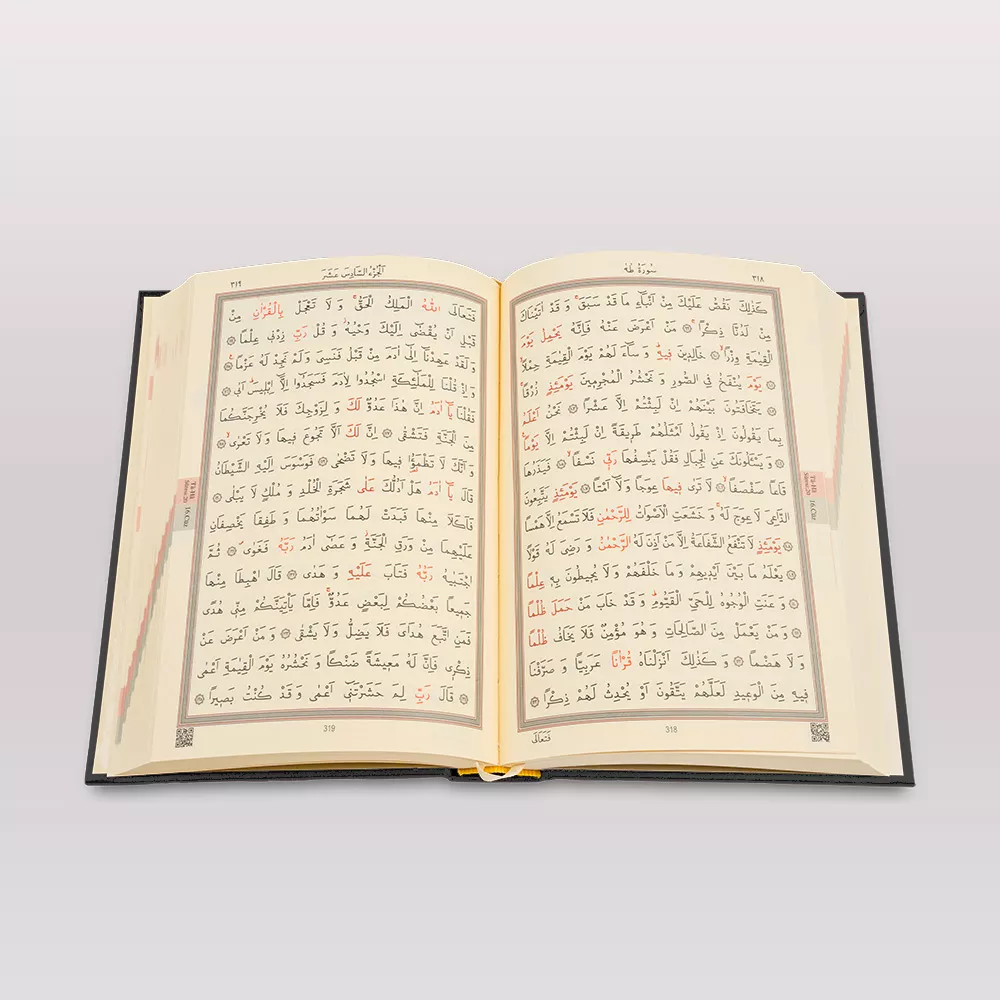 سُورَةُ طٰهٰ ٣١٨
كَذٰلِكَ نَقُصُّ عَلَيْكَ مِنْ اَنْبَٓاءِ مَا قَدْ سَبَقَۚ وَ قَدْ اٰتَيْنَاكَ
مِنْ لَدُنَّا ذِكْرًاۚ ۝ مَنْ اَعْرَضَ عَنْهُ فَاِنَّهُ يَحْمِلُ يَوْمَ
الْقِيٰمَةِ وِزْرًاۙ ۝ خَالِدِينَ فِيهِۜ وَ سَٓاءَ لَهُمْ يَوْمَ الْقِيٰمَةِ حِمْلًاۙ
۝ يَوْمَ يُنْفَخُ فِي الصُّورِ وَ نَحْشُرُ الْمُجْرِمِينَ يَوْمَئِذٍ زُرْقًاۚ
۝ يَتَخَافَتُونَ بَيْنَهُمْ اِنْ لَبِثْتُمْ اِلَّا عَشْرًا ۝ نَحْنُ اَعْلَمُ
بِمَا يَقُولُونَ اِذْ يَقُولُ اَمْثَلُهُمْ طَرِيقَةً اِنْ لَبِثْتُمْ اِلَّا يَوْمًا۟
۝ وَ يَسْـَٔلُونَكَ عَنِ الْجِبَالِ فَقُلْ يَنْسِفُهَا رَبِّي نَسْفًاۙ ۝ فَيَذَرُهَا
قَاعًا صَفْصَفًاۙ ۝ لَا تَرٰى فِيهَا عِوَجًا وَلَٓا اَمْتًاۜ ۝ يَوْمَئِذٍ يَتَّبِعُونَ
الدَّاعِيَ لَا عِوَجَ لَهُۚ وَ خَشَعَتِ الْاَصْوَاتُ لِلرَّحْمٰنِ فَلَا تَسْمَعُ اِلَّا هَمْسًا
۝ يَوْمَئِذٍ لَا تَنْفَعُ الشَّفَاعَةُ اِلَّا مَنْ اَذِنَ لَهُ الرَّحْمٰنُ وَ رَضِيَ لَهُ قَوْلًا
۝ يَعْلَمُ مَا بَيْنَ اَيْدِيهِمْ وَ مَا خَلْفَهُمْ وَ لَا يُحِيطُونَ بِهِ عِلْمًا
۝ وَ عَنَتِ الْوُجُوهُ لِلْحَيِّ الْقَيُّومِۜ وَ قَدْ خَابَ مَنْ حَمَلَ ظُلْمًا
۝ وَ مَنْ يَعْمَلْ مِنَ الصَّالِحَاتِ وَ هُوَ مُؤْمِنٌ فَلَا يَخَافُ ظُلْمًا
وَ لَا هَضْمًا ۝ وَ كَذٰلِكَ اَنْزَلْنَاهُ قُرْاٰنًا عَرَبِيًّا وَ صَرَّفْنَا
فِيهِ مِنَ الْوَعِيدِ لَعَلَّهُمْ يَتَّقُونَ اَوْ يُحْدِثُ لَهُمْ ذِكْرًا ۝
فَتَعَالَى 318
Tâ-Hâ
Sûresi:20 16.Cüz
اَلْجُزْءُ السَّادِسَ عَشَرَ ٣١٩
فَتَعَالَى اللّٰهُ الْمَلِكُ الْحَقُّۚ وَ لَا تَعْجَلْ بِالْقُرْاٰنِ مِنْ
قَبْلِ اَنْ يُقْضٰٓى اِلَيْكَ وَحْيُهُۘ وَ قُلْ رَبِّ زِدْنِي عِلْمًا ۝
وَ لَقَدْ عَهِدْنَٓا اِلٰٓى اٰدَمَ مِنْ قَبْلُ فَنَسِيَ وَ لَمْ نَجِدْ لَهُ عَزْمًا۟ ۝
وَ اِذْ قُلْنَا لِلْمَلٰٓئِكَةِ اسْجُدُوا لِاٰدَمَ فَسَجَدُٓوا اِلَّٓا اِبْلِيسَۜ اَبٰى ۝
فَقُلْنَا يَٓا اٰدَمُ اِنَّ هٰذَا عَدُوٌّ لَكَ وَ لِزَوْجِكَ فَلَا يُخْرِجَنَّكُمَا
مِنَ الْجَنَّةِ فَتَشْقٰى ۝ اِنَّ لَكَ اَلَّا تَجُوعَ فِيهَا وَلَا تَعْرٰىۙ ۝
وَ اَنَّكَ لَا تَظْمَؤُ۬ا فِيهَا وَلَا تَضْحٰى ۝ فَوَسْوَسَ اِلَيْهِ الشَّيْطَانُ
قَالَ يَٓا اٰدَمُ هَلْ اَدُلُّكَ عَلٰى شَجَرَةِ الْخُلْدِ وَ مُلْكٍ لَا يَبْلٰى ۝
فَاَكَلَا مِنْهَا فَبَدَتْ لَهُمَا سَوْاٰتُهُمَا وَ طَفِقَا يَخْصِفَانِ
عَلَيْهِمَا مِنْ وَرَقِ الْجَنَّةِۘ وَ عَصٰٓى اٰدَمُ رَبَّهُ فَغَوٰىۖ ۝ ثُمَّ
اجْتَبٰيهُ رَبُّهُ فَتَابَ عَلَيْهِ وَ هَدٰى ۝ قَالَ اهْبِطَا مِنْهَا
جَمِيعًا بَعْضُكُمْ لِبَعْضٍ عَدُوٌّۚ فَاِمَّا يَأْتِيَنَّكُمْ مِنِّي هُدًى
فَمَنِ اتَّبَعَ هُدَايَ فَلَا يَضِلُّ وَ لَا يَشْقٰى ۝ وَ مَنْ اَعْرَضَ عَنْ
ذِكْرِي فَاِنَّ لَهُ مَعِيشَةً ضَنْكًا وَ نَحْشُرُهُ يَوْمَ الْقِيٰمَةِ اَعْمٰى
۝ قَالَ رَبِّ لِمَ حَشَرْتَنِٓي اَعْمٰى وَ قَدْ كُنْتُ بَصِيرًا ۝
319
Tâ-Hâ
Sûresi:20 16.Cüz